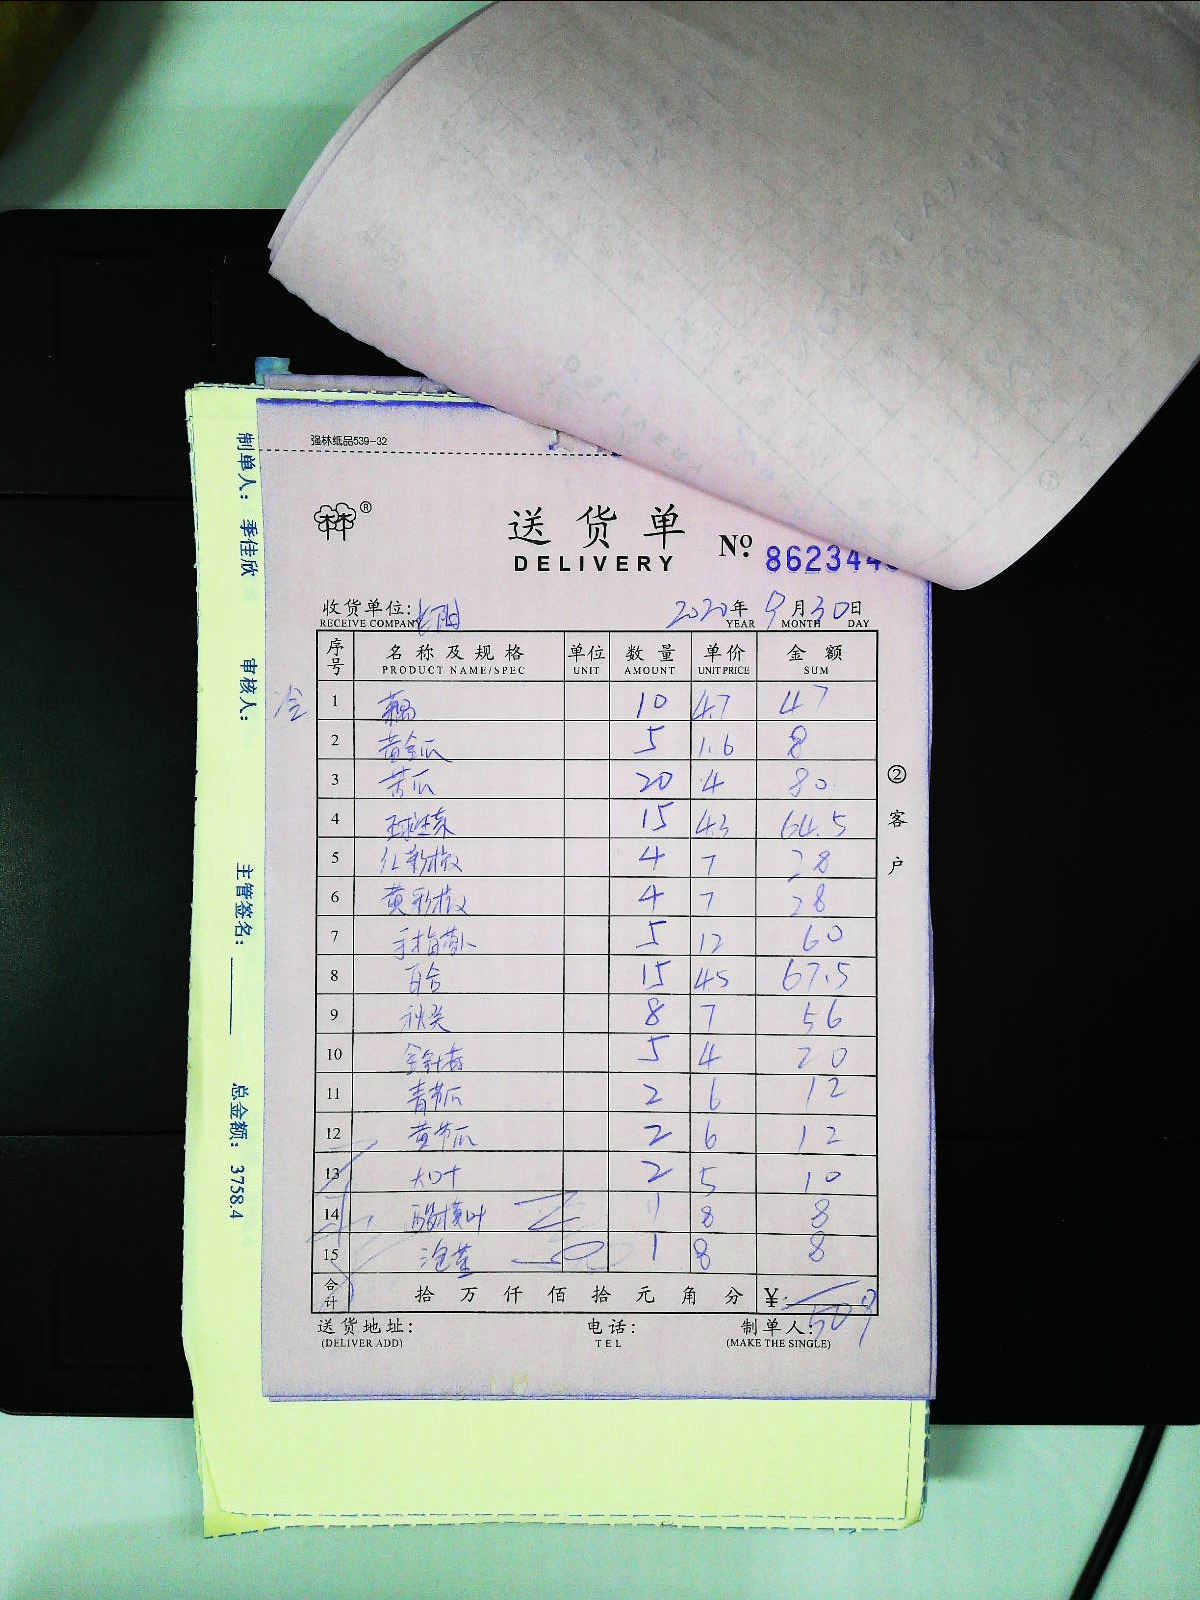 强林纸品539-32
林®
送货单
DELIVERY
№ 862344
收货单位:
RECEIVE COMPANY
2020年 9月30日
YEAR MONTH DAY
序号 名称及规格 单位 数量 单价 金额
PRODUCT NAME/SPEC UNIT AMOUNT UNIT PRICE SUM
冷
1 藕 10 4.7 47
2 黄金瓜 5 1.6 8
3 苦瓜 20 4 80
4 15 4.3 64.5
5 红彩椒 4 7 28
6 黄彩椒 4 7 28
7 手指萝卜 5 12 60
8 百合 15 45 67.5
9 秋葵 8 7 56
10 金针菇 5 4 20
11 青节瓜 2 6 12
12 黄节瓜 2 6 12
13 大叶 2 5 10
14 1 8 8
15 泡姜 1 8 8
合计 拾万仟佰拾元角分 ¥: 509
送货地址: 电话: 制单人:
(DELIVER ADD) TEL (MAKE THE SINGLE)
②客户
制单人: 季佳欣
审核人:
主管签名:
总金额: 3758.4